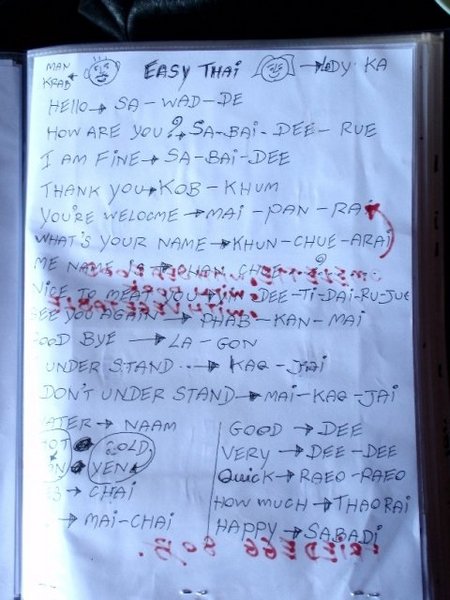 MAN KRAB EASY THAI LADY KA
HELLO → SA-WAD-DE
HOW ARE YOU? → SA-BAI-DEE-RUE
I AM FINE → SA-BAI-DEE
THANK YOU → KOB-KHUM
YOU'RE WELCOME → MAI-PAN-RAI
WHAT'S YOUR NAME → KHUN-CHUE-ARAI
ME NAME IS → CHUE ?
NICE TO MEAT YOU → DEE-TI-DAI-RU-JUE
SEE YOU AGAIN → PHAB-KAN-MAI
GOOD BYE → LA-GON
UNDER STAND → KAO-JAI
DON'T UNDER STAND → MAI-KAO-JAI
WATER → NAAM
COLD
YEN
→ CHAI
→ MAI-CHAI
GOOD → DEE
VERY → DEE-DEE
QUICK → RAEO-RAEO
HOW MUCH → THAORAI
HAPPY → SABADI